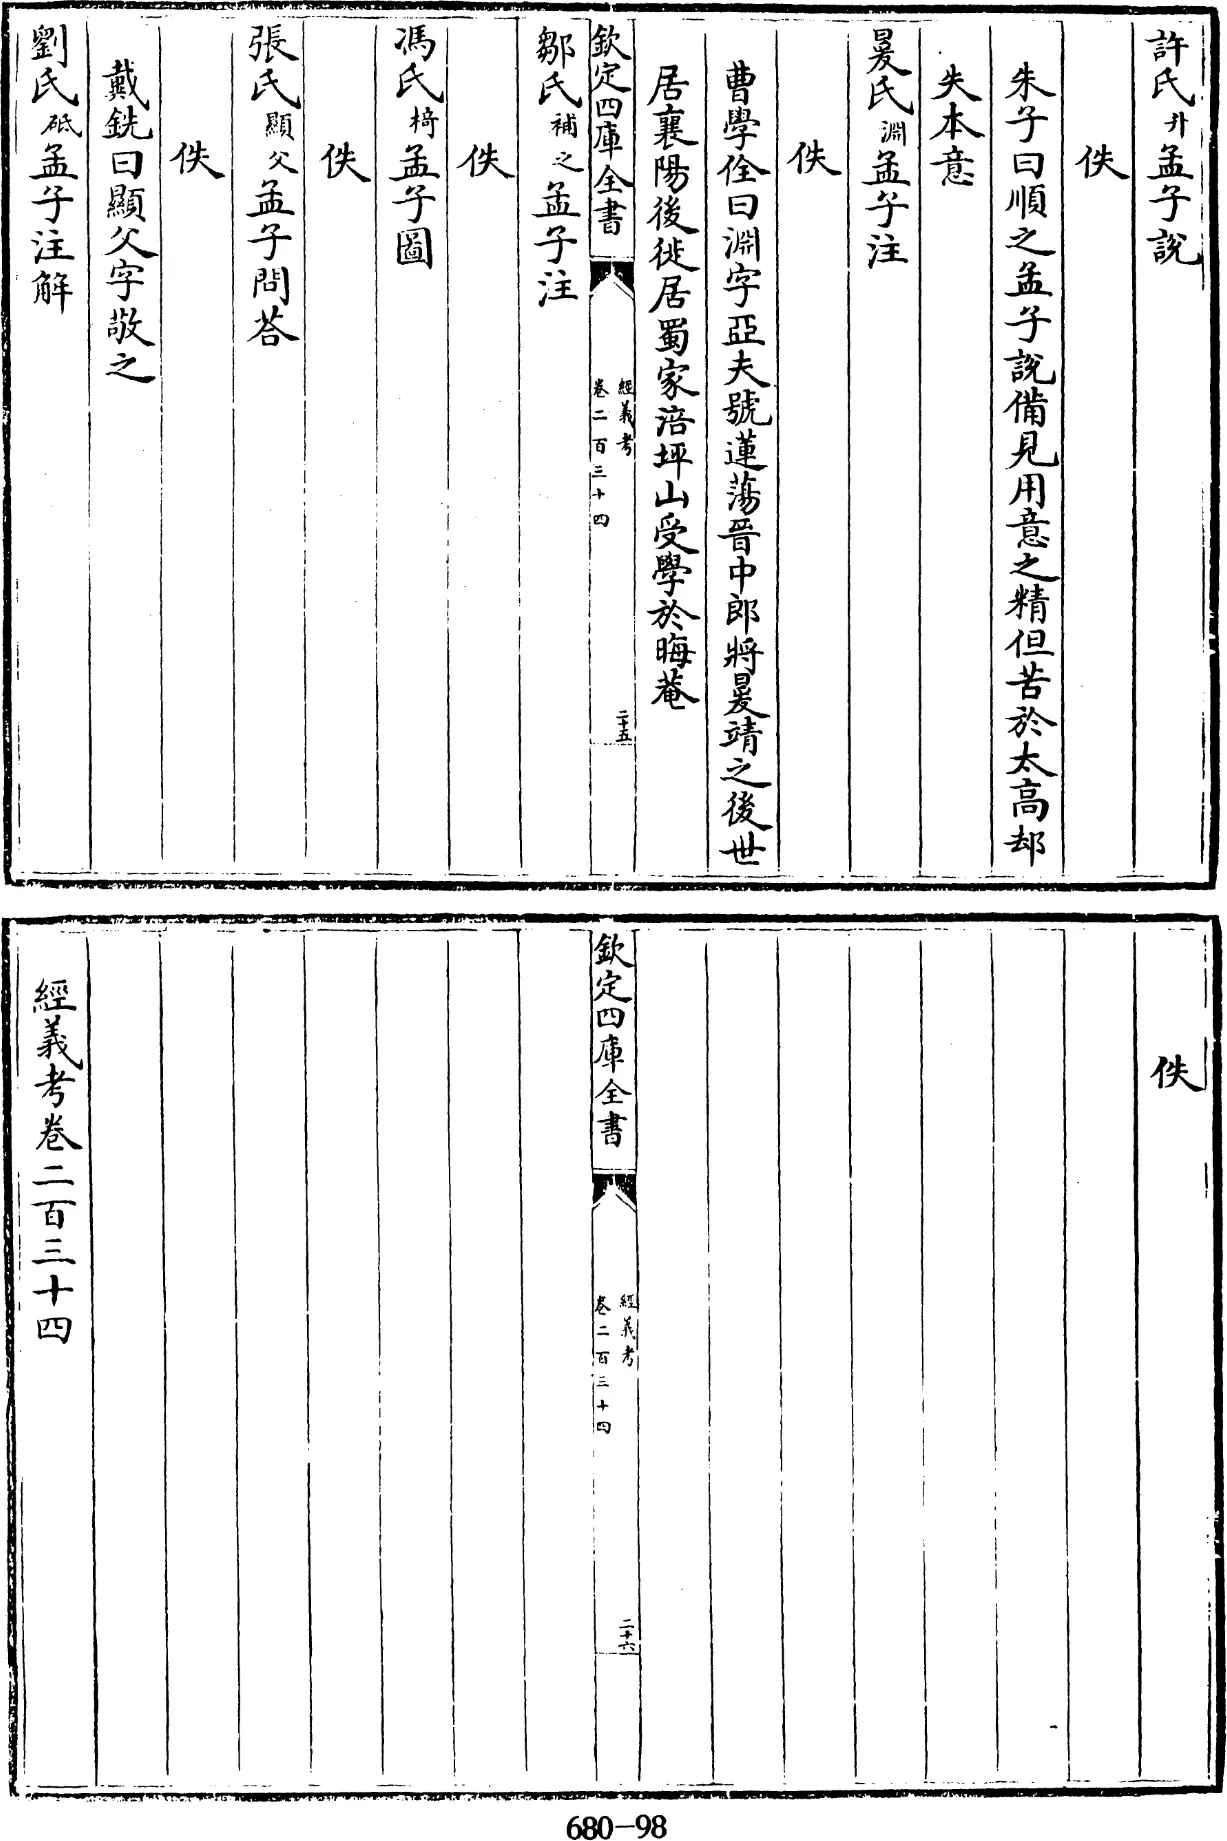 許氏升孟子說
佚
朱子曰順之孟子說備見用意之精但苦於太高却
失本意
㬊氏淵孟子注
佚
曹學佺曰淵字亞夫號蓮蕩晉中郎將㬊靖之後世
居襄陽後徙居蜀家涪坪山受學於晦菴
欽定四庫全書
經義考
卷二百三十四
二十五
鄒氏補之孟子注
佚
馮氏椅孟子圖
佚
張氏顯父孟子問荅
佚
戴銑曰顯父字敬之
劉氏砥孟子注解
佚
欽定四庫全書
經義考
卷二百三十四
二十六
經義考卷二百三十四
680-98